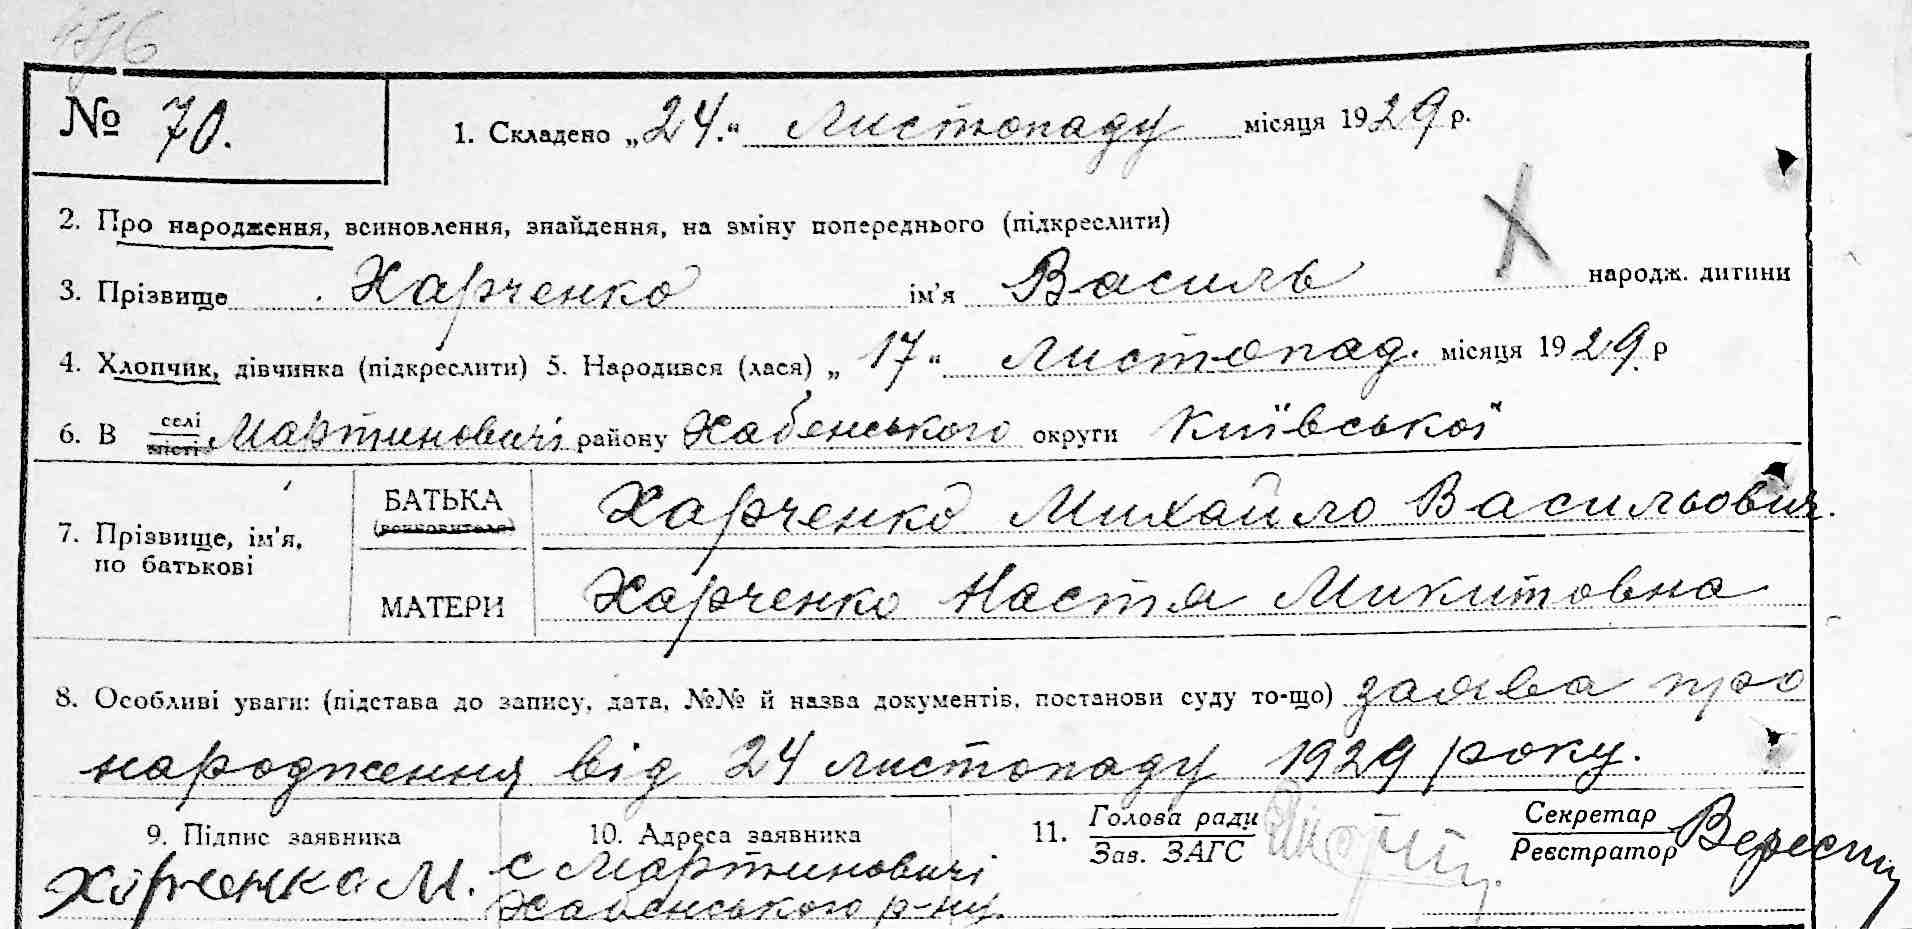 № 70.
1. Складено „24." Листопаду місяця 1929 р.
2. Про народження, всиновлення, знайдення, на зміну попереднього (підкреслити)
3. Прізвище Харченко ім'я Василь народж. дитини
4. Хлопчик, дівчинка (підкреслити) 5. Народився (лася) „17" Листопад. місяця 1929. р
6. В селі місті Мартиновичі району Хабенського округи Київської
7. Прізвище, ім'я, по батькові
БАТЬКА (всиновителя) Харченко Михайло Васильович.
МАТЕРИ Харченко Настя Микитовна
8. Особливі уваги: (підстава до запису, дата, №№ й назва документів, постанови суду то-що) заява про
народження від 24 листопаду 1929 року.
9. Підпис заявника
Харченко М.
10. Адреса заявника
с Мартиновичі
Хабенського р-ну.
11. Голова ради
Зав. ЗАГС
Секретар
Реєстратор